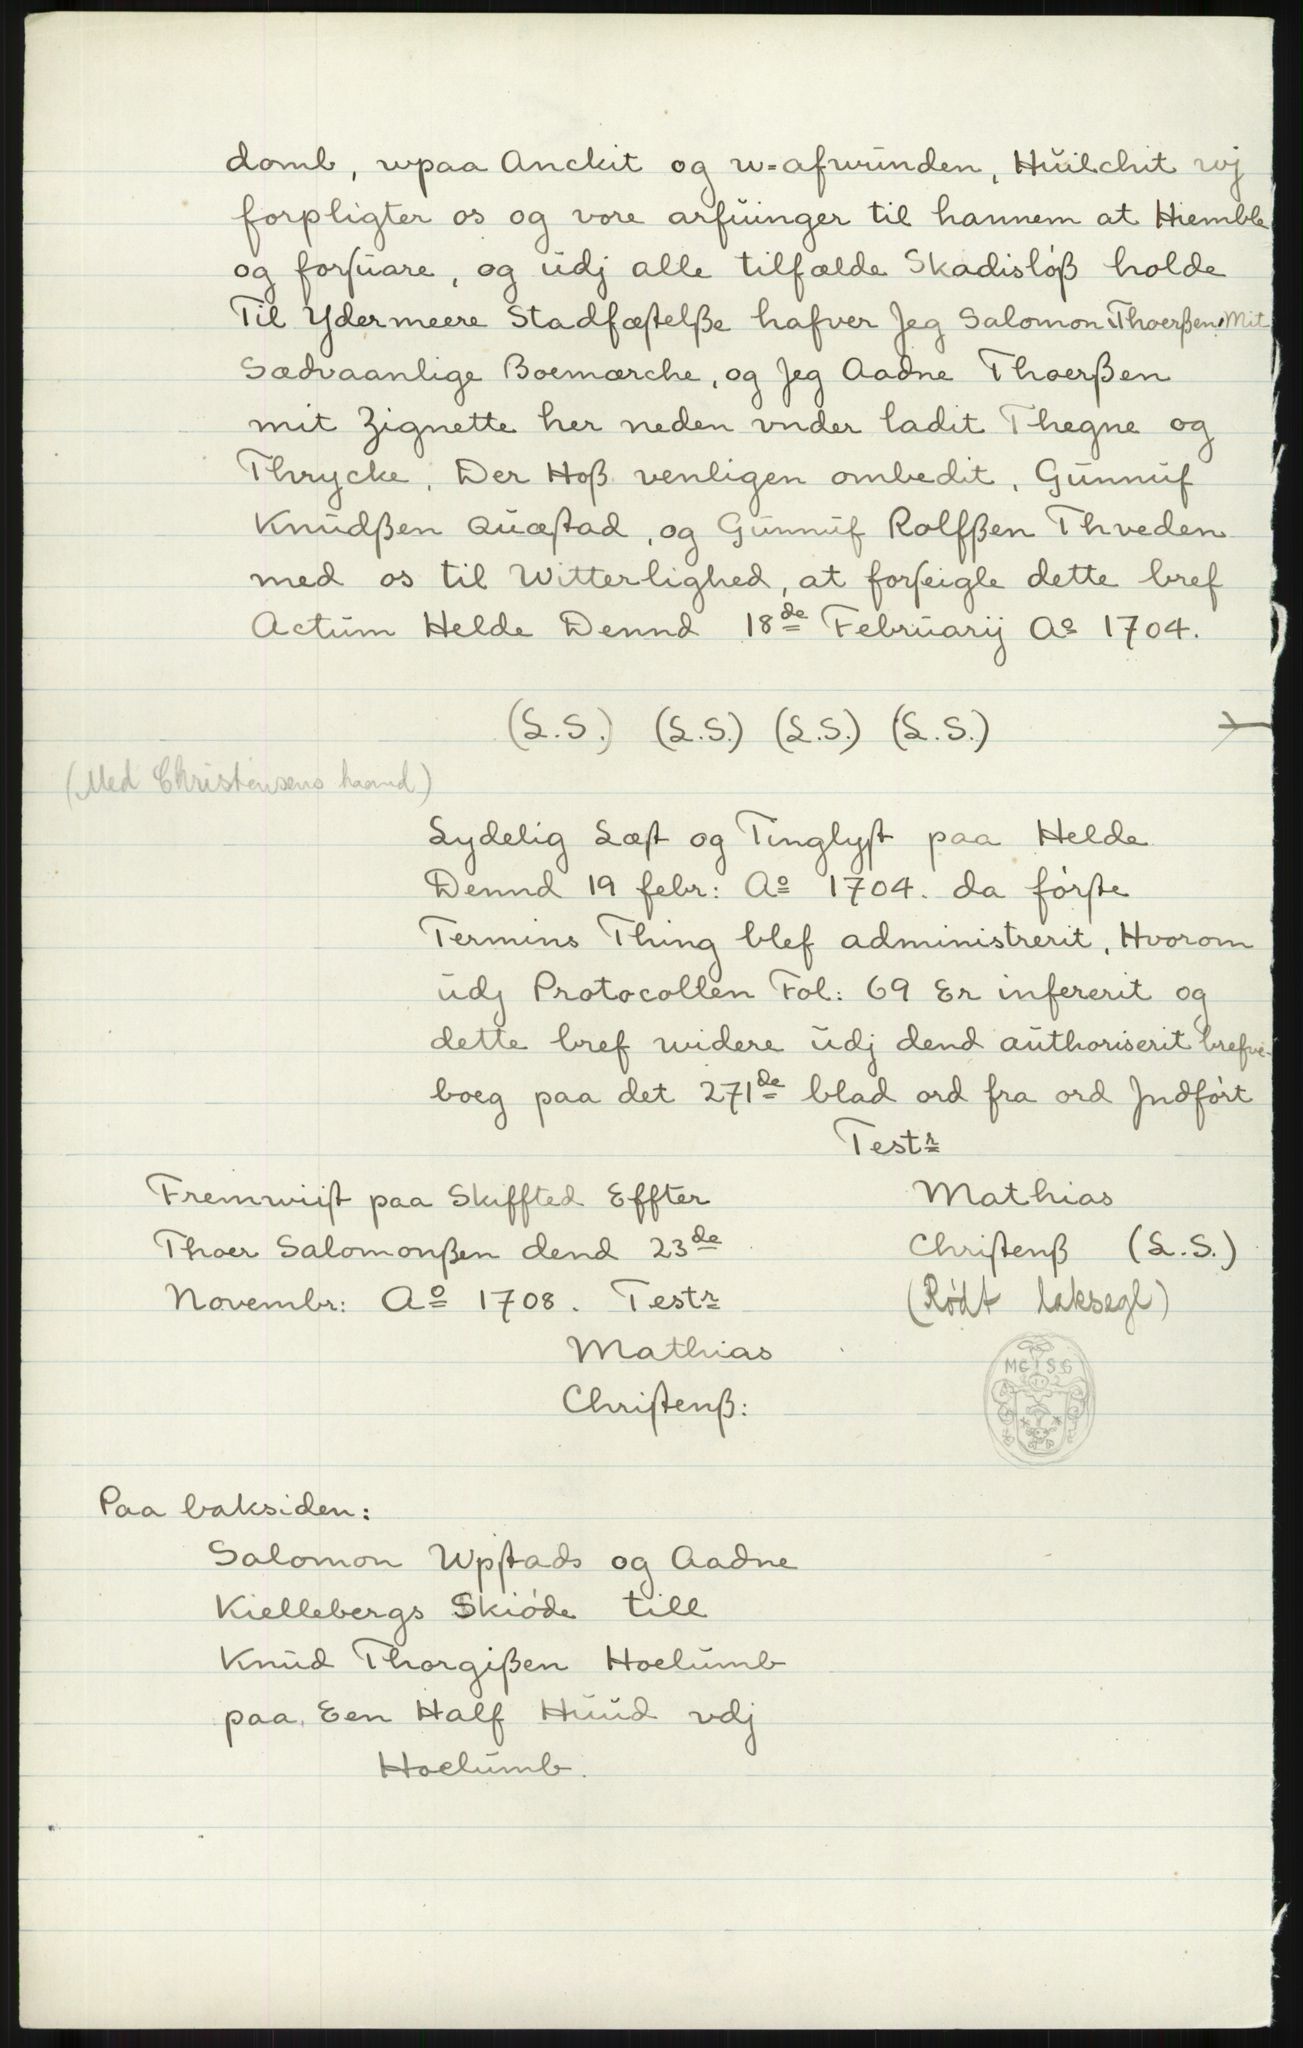 domb, wpaa Anckit og w=afwunden, Huilchit wj
forpligter os og vore arfuinger til hannem at Hiemble
og forsuare, og udj alle tilfælde Skadisløß holde
Til Ydermeere Stadfæstelße hafver Jeg Salomon Thoerßen Mit
Sædvaanlige Boemærche, og Jeg Aadne Thoerßen
mit Zignette her neden vnder ladit Thegne og
Thrycke. Der Hoß venligen ombedit, Gunnuf
Knudßen Quæstad, og Gunnuf Rolfßen Thveden
med os til Witterlighed, at forseigle dette bref
Actum Helde Dennd 18de Februarij Ao 1704.
(L.S.) (L.S.) (L.S.) (L.S.)
(Med Christensens haand)
Lydelig Læst og Tinglyst paa Helde
Dennd 19 febr: Ao 1704. da første
Termins Thing blef administrerit, Hvorom
udj Protocollen Fol: 69 Er infererit og
dette bref widere udj dend authoriserit brefve-
boeg paa det 271de blad ord fra ord Jndført
Testr
Fremwiist paa Skiffted Effter
Thoer Salomonßen dend 23de
Novembr: Ao 1708. Testr
Mathias
Christenß:
Mathias
Christenß (L.S.)
(Rødt laksegl)
MC SG
Paa baksiden:
Salomon Upstads og Aadne
Kiellebergs Skiøde till
Knud Thorgißen Hoelumb
paa Een Half Huud vdj
Hoelumb.